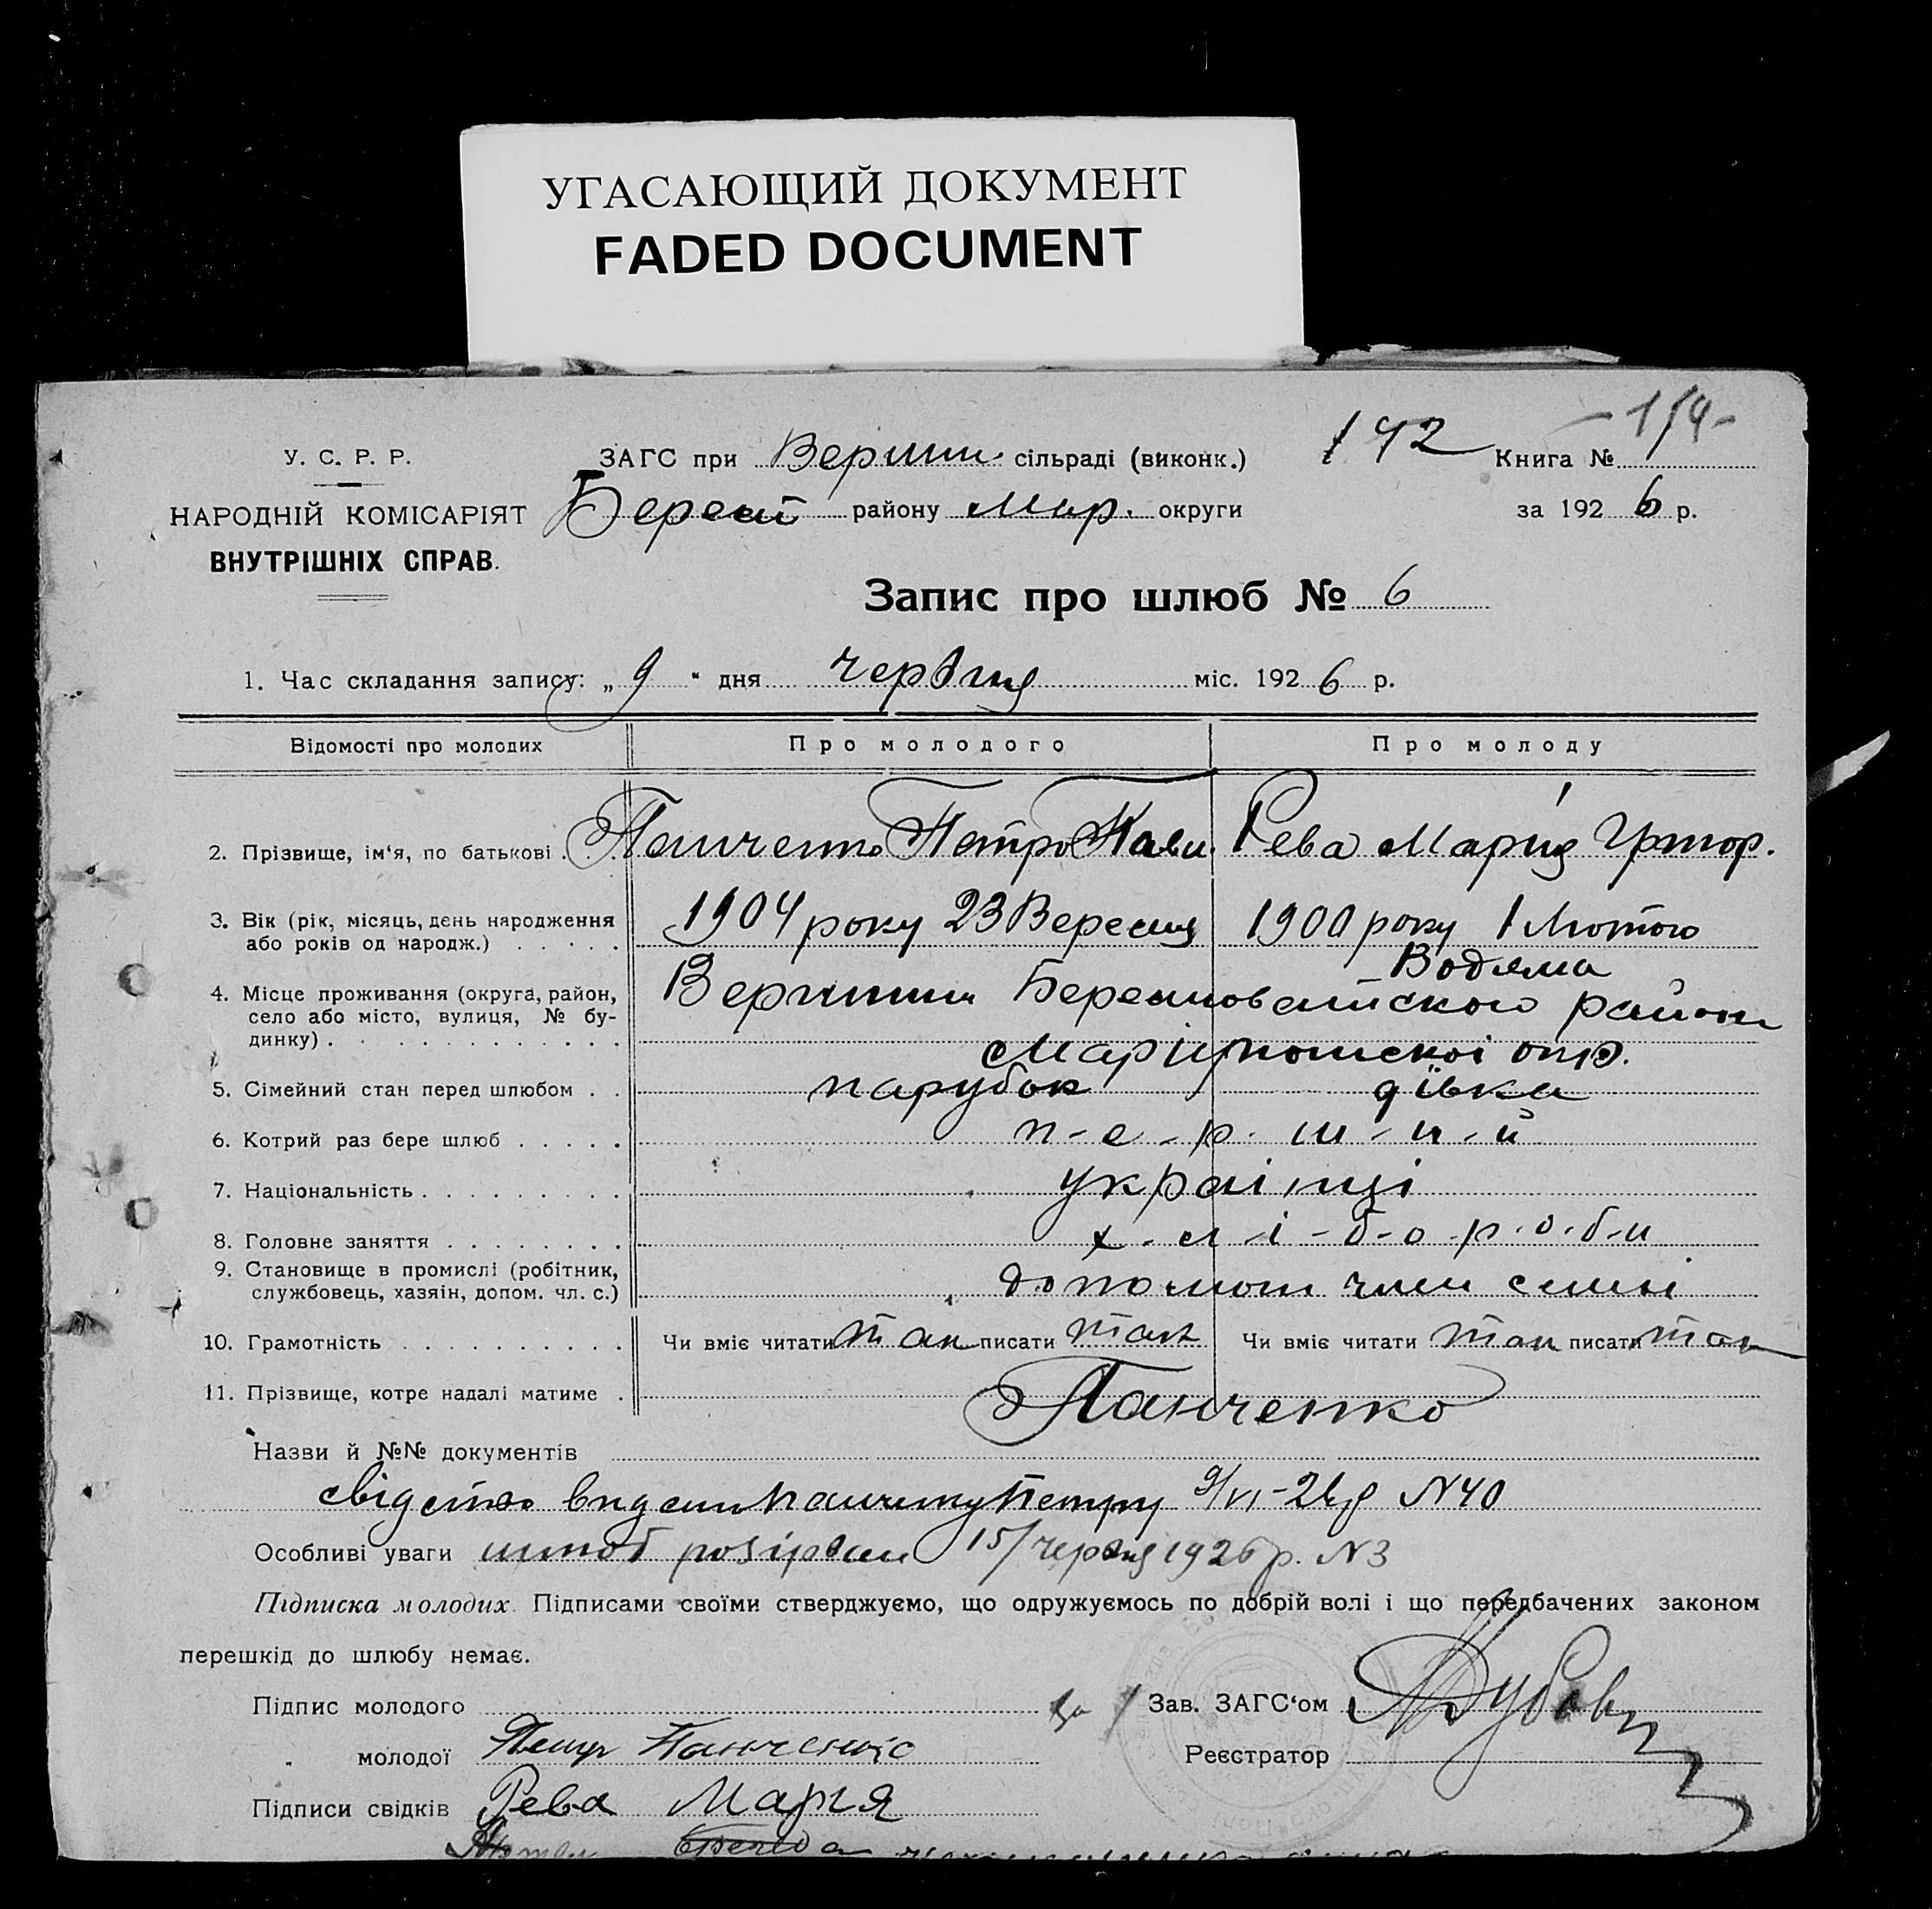 УГАСАЮЩИЙ ДОКУМЕНТ
FADED DOCUMENT
У. С. Р. Р.
НАРОДНІЙ КОМІСАРІЯТ
ВНУТРІШНІХ СПРАВ.
ЗАГС при Верши. сільраді (виконк.)
192
Книга №
Берест району Мар. округи
за 1926 р.
Запис про шлюб № 6
1. Час складання запису: „ 9 “ дня червня міс. 1926 р.
Відомості про молодих Про молодого Про молоду
2. Прізвище, ім‘я, по батькові . . . Панченко Петро Павл. Рева Марія Григор.
3. Вік (рік, місяць, день народження
або років од народж.) . . . . . 1904 року 23 Вересня 1900 року 1 Лютого
Водяна
4. Місце проживання (округа, район, Вершини Берестоватского району
село або місто, вулиця, № бу-
динку) . . . . . . . . . . . . Маріупольскоі окр.
5. Сімейний стан перед шлюбом . . парубок дівка
6. Котрий раз бере шлюб . . . . . п-е-р-ш-и-й
7. Національність . . . . . . . . . україінці
8. Головне заняття . . . . . . . . х-л-і-б-о-р-о-б-и
9. Становище в промислі (робітник,
службовець, хазяїн, допом. чл. с.) допомош член семьі
10. Грамотність . . . . . . . . . . Чи вміє читати так писати так Чи вміє читати так писати так
11. Прізвище, котре надалі матиме . Панченко
Назви й №№ документів
свідство видано Панченку Петру 9/VI-26р N40
Особливі уваги шлюб розірван 15/червня 1926р. N3
Підписка молодих. Підписами своїми стверджуємо, що одружуємось по добрій волі і що передбачених законом
перешкід до шлюбу немає.
Підпис молодого
Зав. ЗАГС‘ом
„ молодої Петр Панченко
Реєстратор
Підписи свідків Рева Марія